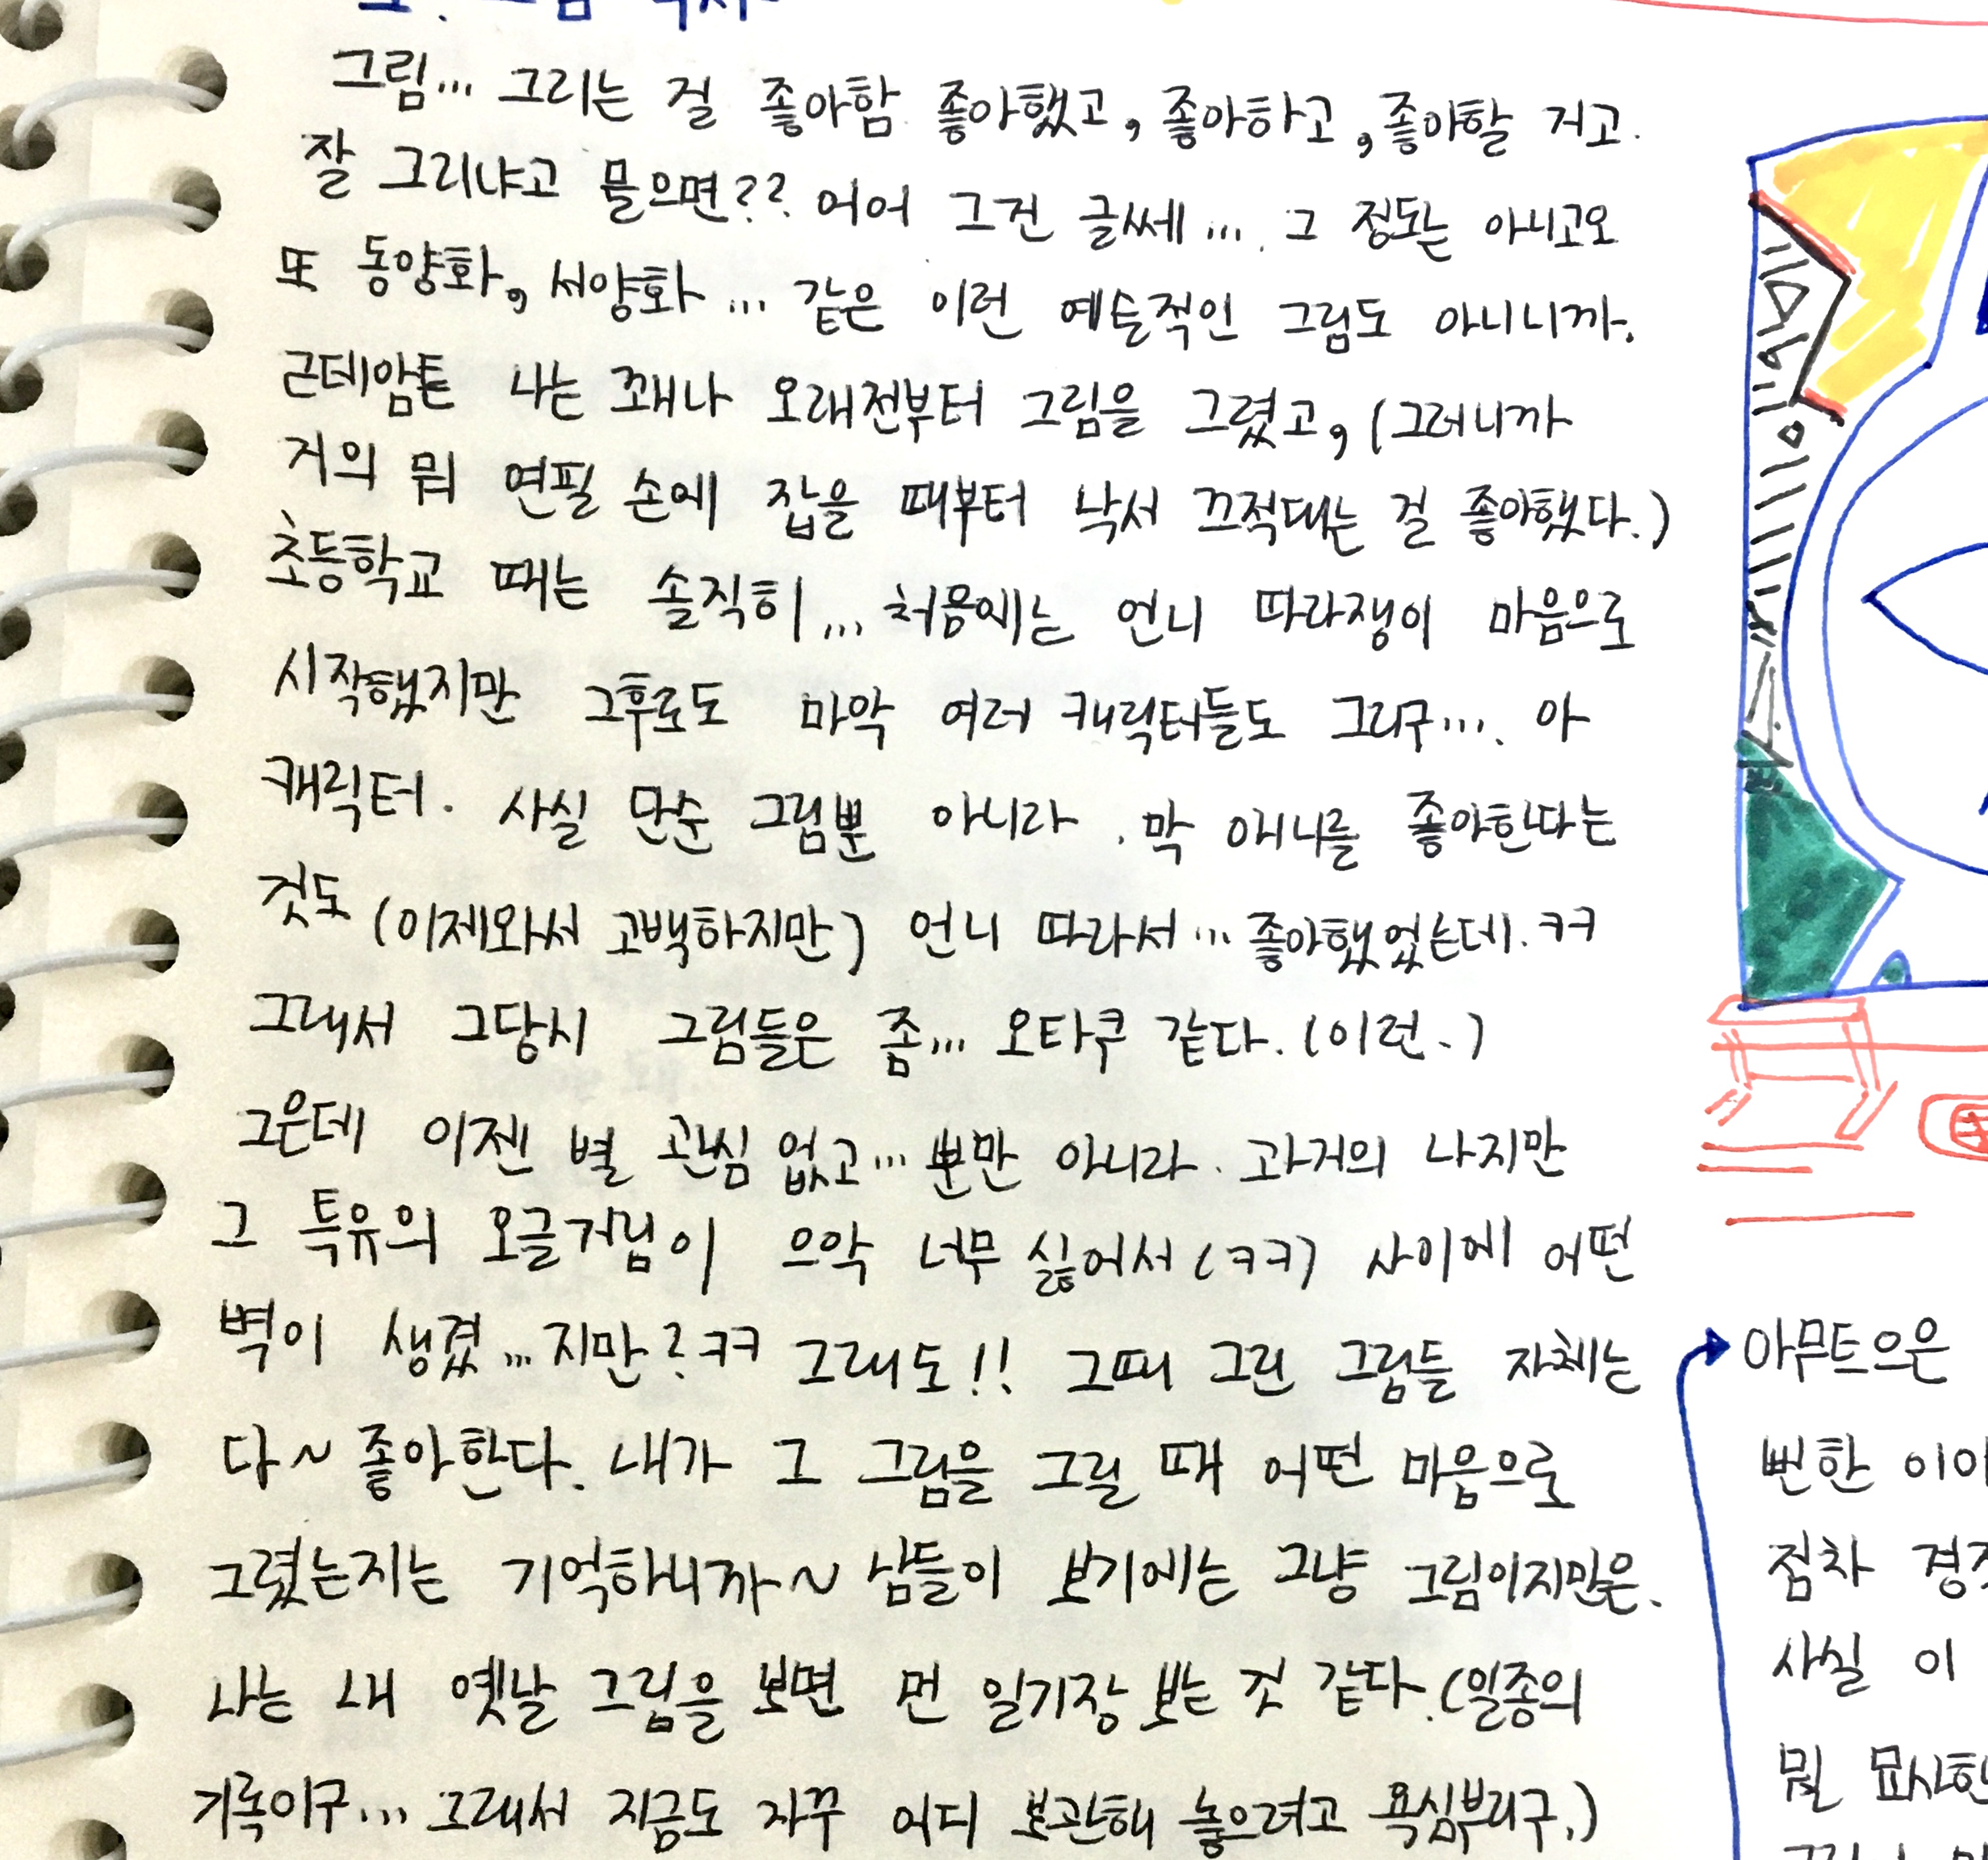 그림... 그리는 걸 좋아함 좋아했고, 좋아하고, 좋아할 거고.
잘 그리냐고 물으면?? 어어 그건 글쎄.... 그 정도는 아니고오
또 동양화, 서양화... 같은 이런 예술적인 그림도 아니니까.
근데암튼 나는 꽤나 오래전부터 그림을 그렸고, (그러니까
거의 뭐 연필 손에 잡을 때부터 낙서 끄적대는 걸 좋아했다.)
초등학교 때는 솔직히... 처음에는 언니 따라쟁이 마음으로
시작했지만 그후로도 마악 여러 캐릭터들도 그리구.... 아
캐릭터. 사실 단순 그림뿐 아니라. 막 애니를 좋아한다는
것도 (이제와서 고백하지만) 언니 따라서... 좋아했었는데. ㅋㅋ
그래서 그당시 그림들은 좀... 오타쿠 같다. (이런.)
그은데 이젠 별 관심 없고... 뿐만 아니라. 과거의 나지만
그 특유의 오글거림이 으악 너무 싫어서 (ㅋㅋ) 사이에 어떤
벽이 생겼...지만? ㅋㅋ 그래도!! 그때 그린 그림들 자체는
다~ 좋아한다. 내가 그 그림을 그릴 때 어떤 마음으로
그렸는지는 기억하니까~ 남들이 보기에는 그냥 그림이지만은.
나는 내 옛날 그림을 보면 먼 일기장 보는 것 같다. (일종의
기록이구... 그래서 지금도 자꾸 어디 보관해 놓으려고 욕심부리구.)
아무트으은
뻔한 이야
점차
사실 이
뭘 묘사한